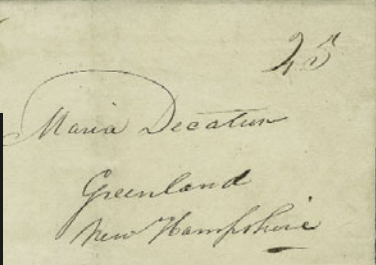 25
Maria Decatur
Greenland
New Hampshire